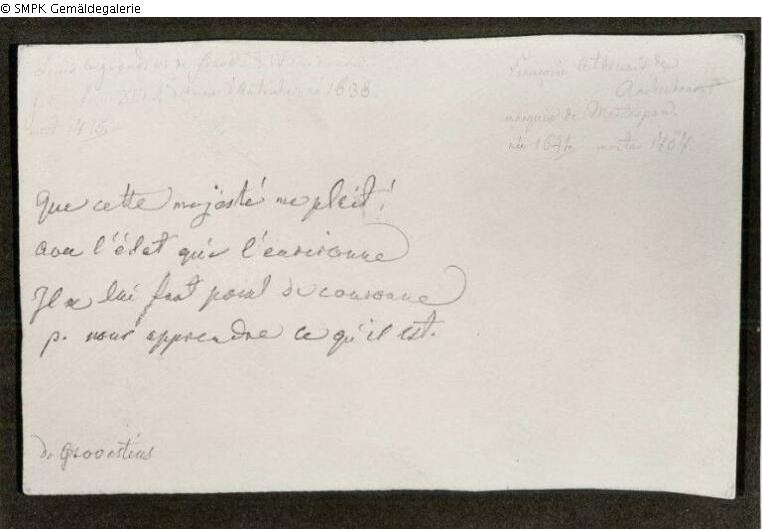 © SMPK Gemäldegalerie
Louis le grand roi de
XIII d'Anne d'Autriche né 1638.
mort 1715
Françoise Athenaïs de
Rochechouart
marquise de Montespan.
née 1641 morte 1707.
Que cette majésté me plait!
l'éclat qui l'environne
Il ne lui faut point de couronne
p. nous apprendre ce qu'il est.
de Grovestins